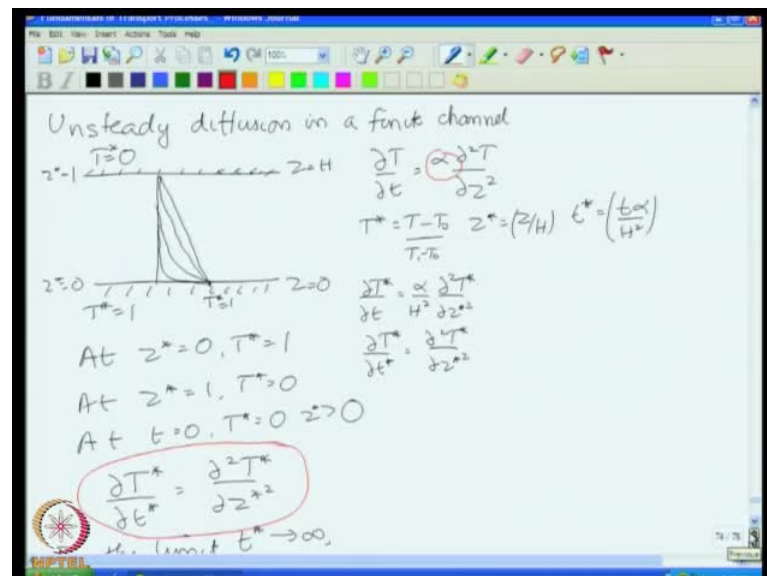 Fundamentals of Transport Processes - Windows Journal
File Edit View Insert Actions Tools Help
100%
B I
Unsteady diffusion in a finite channel
T*=0
z*=1 z=H
∂T/∂t = α ∂²T/∂z²
T* = (T-T₀)/(T₁-T₀) z* = (z/H) t* = (tα/H²)
z*=0 z=0
T*=1 T*=1
∂T*/∂t = α/H² ∂²T*/∂z*²
∂T*/∂t* = ∂²T*/∂z*²
At z*=0, T*=1
At z*=1, T*=0
At t=0, T*=0 z*>0
∂T*/∂t* = ∂²T*/∂z*²
the limit t* → ∞,
NPTEL
74 / 78
Previous